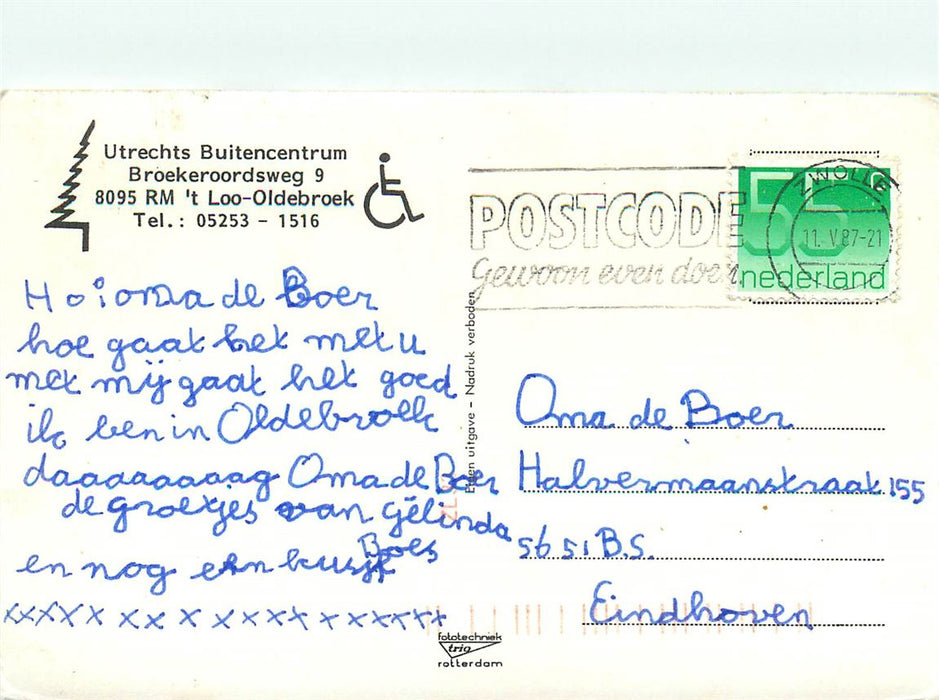 Utrechts Buitencentrum
Broekeroordsweg 9
8095 RM 't Loo-Oldebroek
Tel.: 05253 - 1516
POSTCODE
Gewoon even doen
55c
nederland
ZWOLLE
11. V.87-21
Hoi oma de Boer
hoe gaat het met u
met mij gaat het goed
ik ben in Oldebroek
daaaaaaaag Oma de Boer
de groetjes van gëlinda
Boes
en nog een kusje
xxxxx xx x xxxxxxxxxx
Eigen uitgave - Nadruk verboden
Oma de Boer
Halvermaanstraat 155
5651 B.S.
Eindhoven
fototechniek
trio
rotterdam